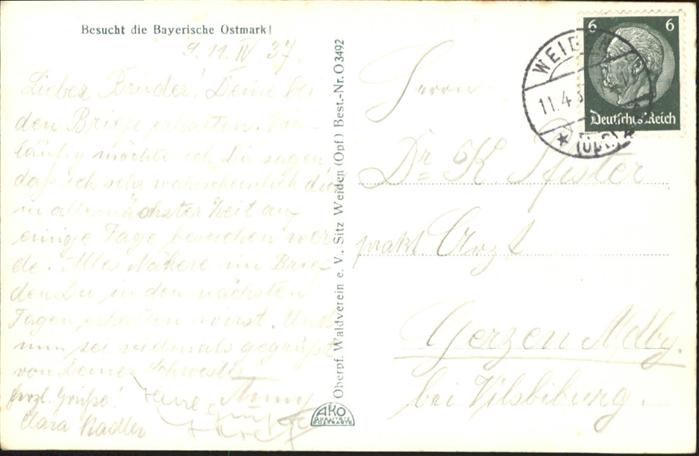 Besucht die Bayerische Ostmark!
S. 11. IV 37
Lieber Bruder! Deine bei
den Briefe erhalten. Vor
läufig möchte ich Dir sagen
daß ich sehr wahrscheinlich dich
in allernächster Zeit auf
einige Tage besuchen wer
de. Alles Nähere im Brie
den Du in den nächsten
Tagen erhalten wirst. Und
nun sei vielmals gegrüßt
von Deiner Schwester
Anny
herzl. Grüße!
Clara Stadler
Oberpf. Waldverein e. V., Sitz Weiden (Opf.) Best.-Nr. O 3492
AKO
WEIDEN
11.4.3
(Opf.)
6 6
Deutsches Reich
Herrn
Dr K Pfister
prakt Arzt
Gerzen Ndby.
bei Vilsbiburg.